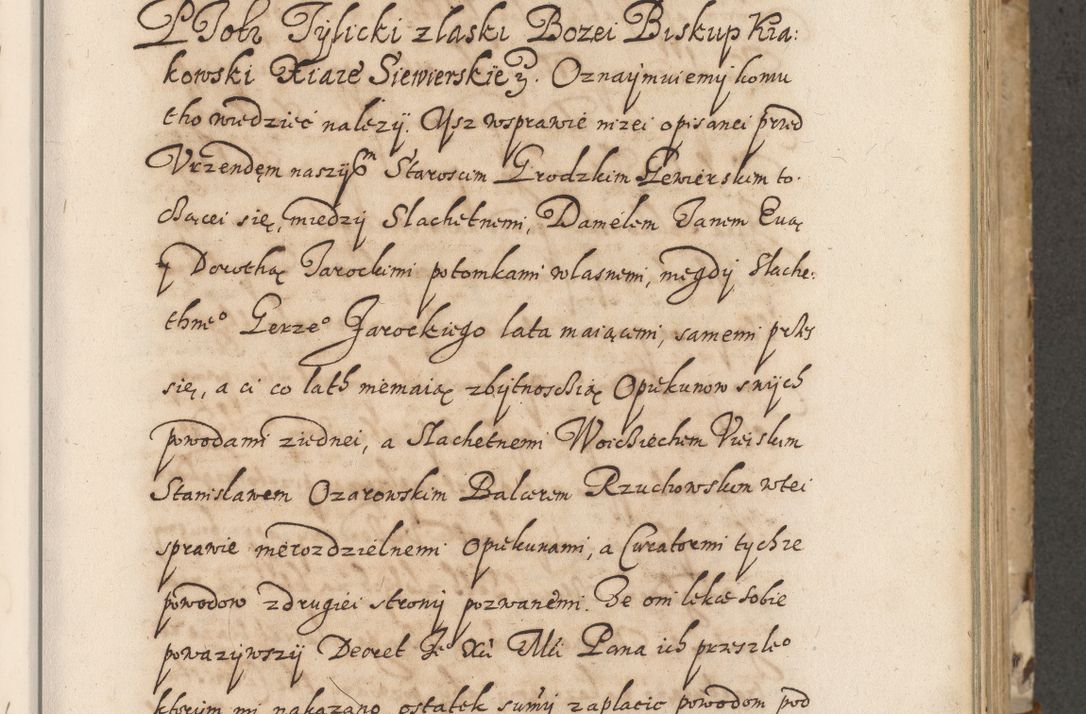 PIotr Tylicki z laski Bozei Biskup Kra:
kowski Xiaze Siewierskie y. Oznaymuiemy komu
tho wiedziec nalezy. Ysz wsprawie nizei opisanei przed
Vrzendem naszym Staroscim Grodzkim Siewierskim to
czacei się, miedzy Slachetnemi, Danielem Janem Ewą
y Dorothą Jarockiemi potomkami wlasnemi, niegdy Slache:
thneo Gerzeo Jarockiego lata maiącemi, samemi przes
się, a ci co lath niemaią zbytnosczią Opiekunow swych
powodami ziednei, a Slachetnemi Woiciechem Vieiskim
Stanislawem Ozarowskim Balcerem Rzuchowskim wtei
sprawie nierozdzielnemi Opiekunami, a Curatormi tychze
powodow zdrugiei strony pozwanemi. Ze oni lekce sobie
powazywszy Decret Je Xci Mci Pana ich przeszleo
ktorym mi nakazano ostatek sumy zaplacic powodom pod